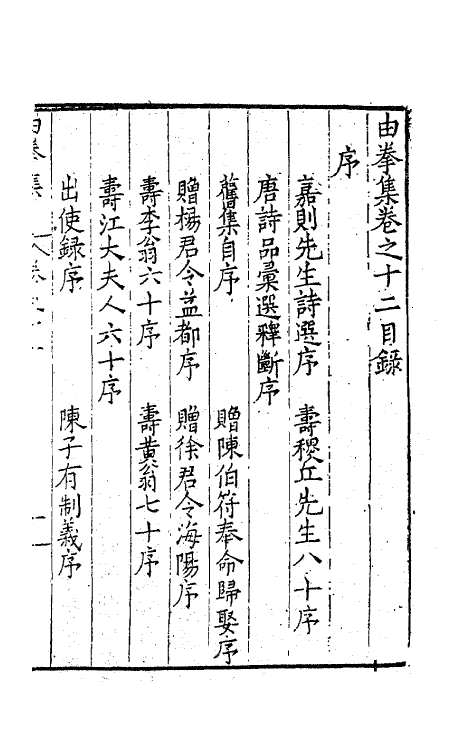 由拳集卷之十二目錄
序
嘉則先生詩選序 壽稷丘先生八十序
唐詩品彙選釋斷序
舊集自序 贈陳伯符奉命歸娶序
贈楊君令益都序 贈徐君令海陽序
壽李翁六十序 壽黃翁七十序
壽江太夫人六十序
出使録序 陳子有制義序
由拳集